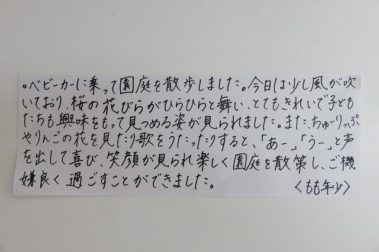 。ベビーカーに乗って園庭を散歩しました。今日は少し風が吹
いており、桜の花びらがひらひらと舞い、とてもきれいで子ども
たちも興味をもって見つめる姿が見られました。また、ちゅーりっぷ
やりんごの花を見たり歌をうたったりすると、「あー」「うー」と声
を出して喜び、笑顔が見られ楽しく園庭を散策し、ご機
嫌良く過ごすことができました。 〈もも年少〉